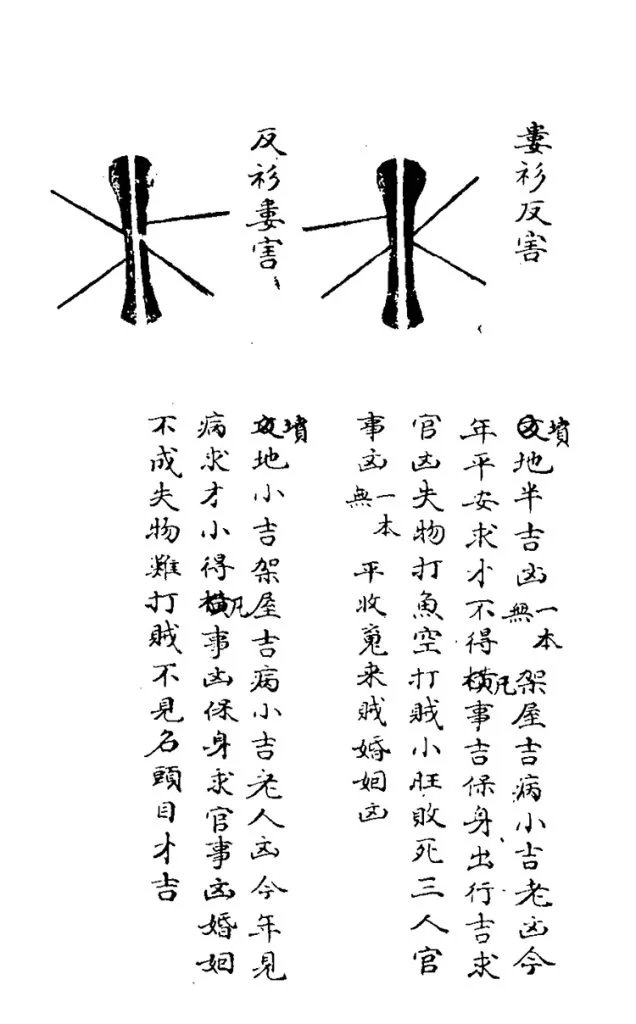 婁衫反害
墳地半吉凶一本無架屋吉病小吉老凶今
年平安求才不得横凡事吉保身出行吉求
官凶失物打魚空打賊小旺敗死三人官
事凶一本無平收嵬来賊婚姻凶
反衫婁害
墳地小吉架屋吉病小吉老人凶今年見
病求才小得凡事凶保身求官事凶婚姻
不成失物難打賊不見名頭目才吉